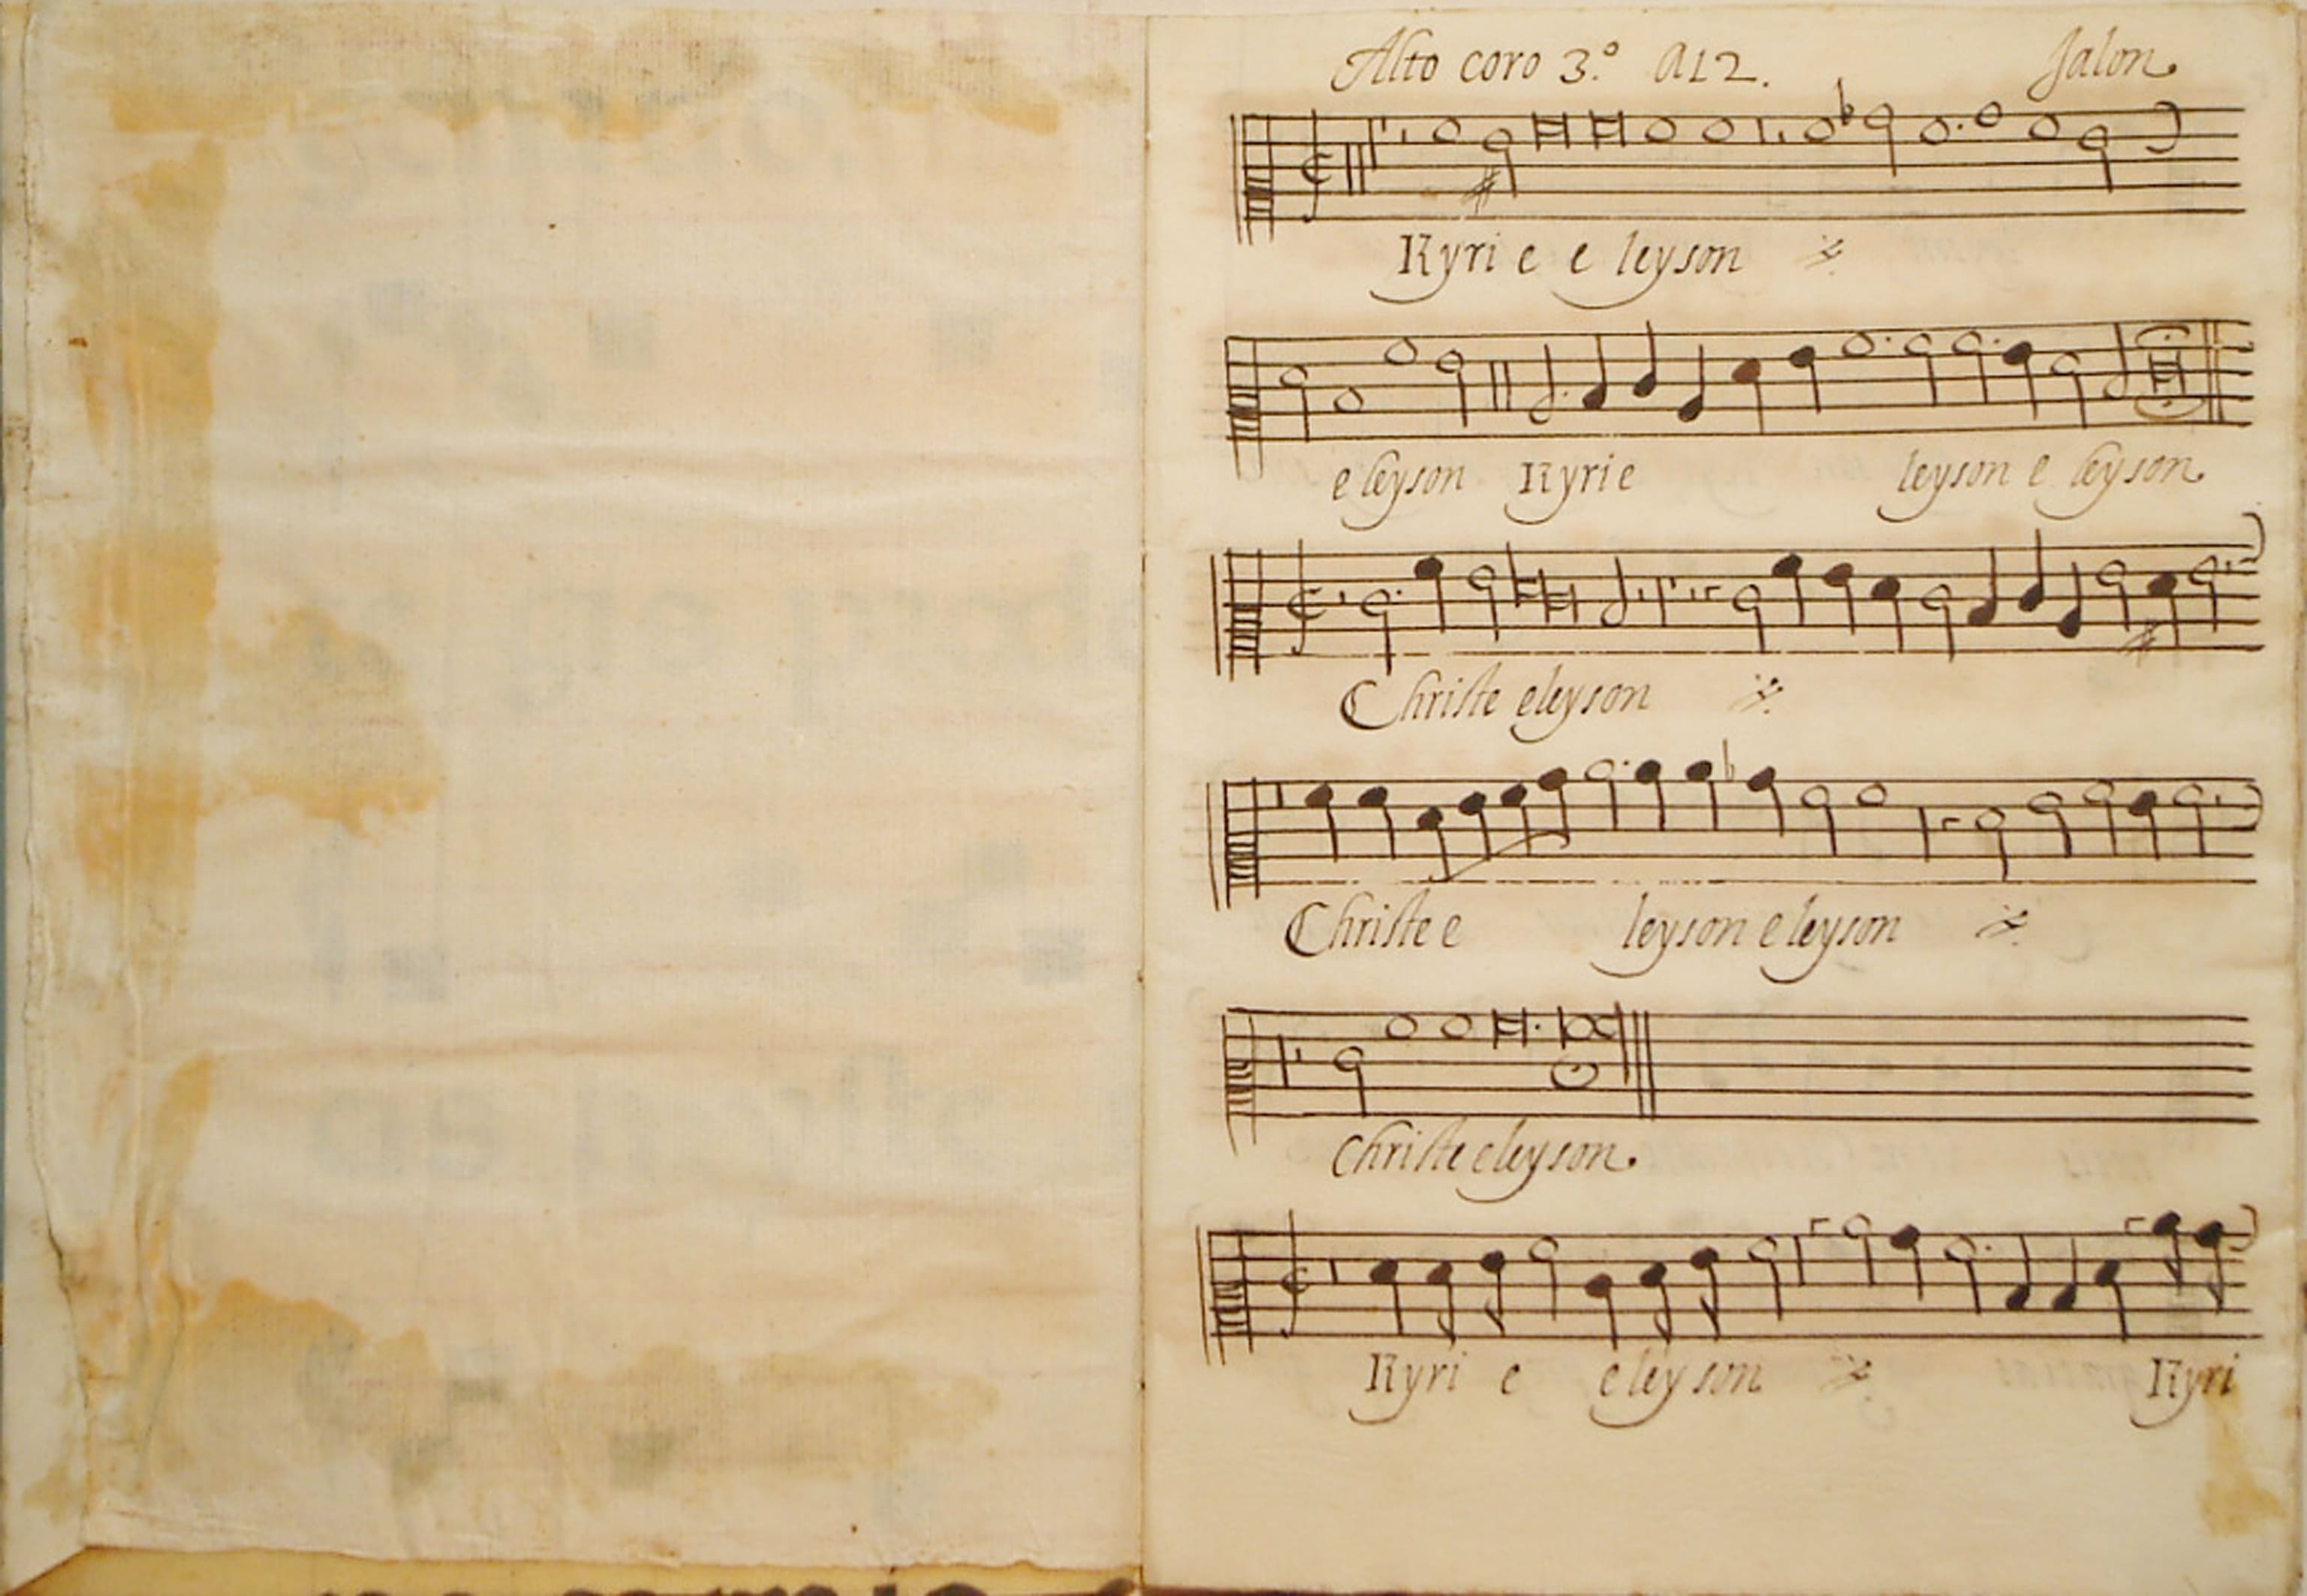 Alto coro 3.º A12. Jalon.
Kyri e e leyson
e leyson Kyri e leyson e leyson.
Christe eleyson
Christe e leyson e leyson
Christe eleyson.
Kyri e e ley son Kyri